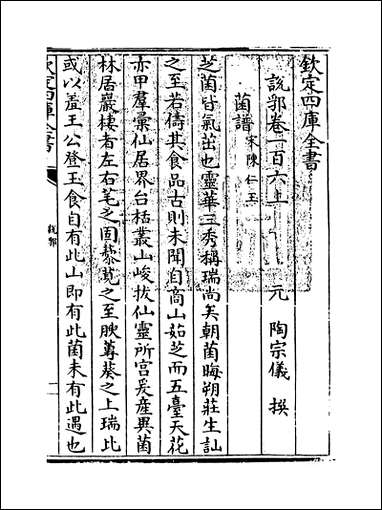 欽定四庫全書
說郛卷一百六上
元　陶宗儀　撰
菌譜宋陳仁玉
芝菌皆氣茁也靈華三秀稱瑞尚矣朝菌晦朔莊生訕
之至若儔其食品古則未聞自商山茹芝而五臺天花
亦甲羣彙仙居界台栝叢山峻拔仙靈所宮爰産異菌
林居巖棲者左右芼之固藜莧之至腴蓴葵之上瑞比
或以羞王公登玉食自有此山即有此菌未有此遇也
欽定四庫全書
說郛
一